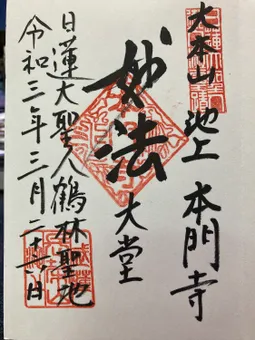 大本山 池上 本門寺
妙法
大堂
日蓮大聖人鶴林聖地
令和三年三月二十六日